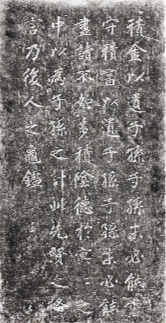 積金以遺子孫子孫未必能
守積書以遺子孫子孫未必能
盡讀不如多積陰德於冥冥之
中以為子孫之計此先賢之格
言乃後人之龜鑑